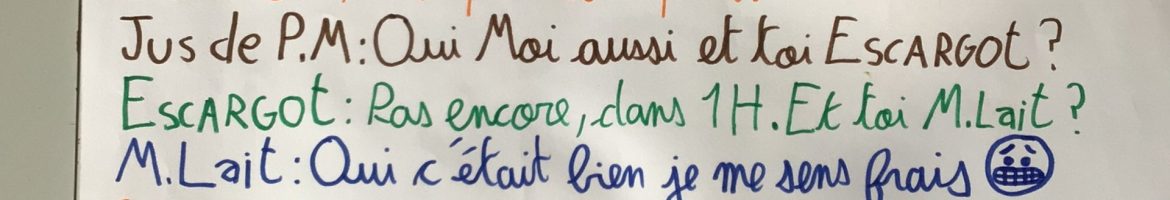 Jus de P.M: Oui Moi aussi et toi ESCARGOT ?
ESCARGOT : Pas encore, dans 1H. Et toi M. Lait ?
M. Lait : Oui c'était bien je me sens frais 😬